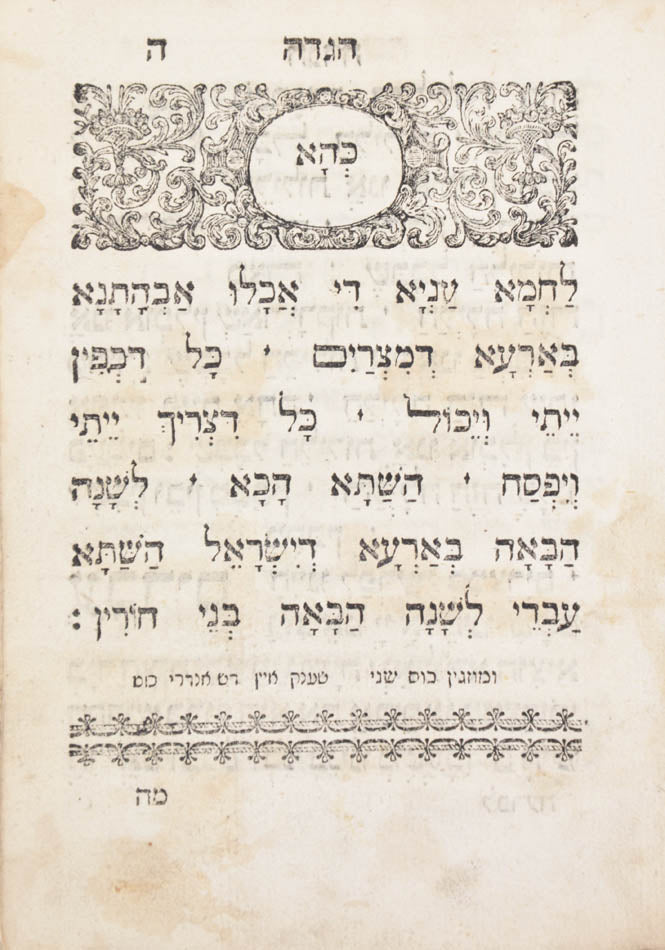 הגדה ה
כְּהָא
לַחְמָא עַנְיָא דִי אֲכָלוּ אַבְהָתָנָא
בְּאַרְעָא דְמִצְרַיִם ׳ כָּל דִכְפִין
יֵיתֵי וְיֵכוֹל ׳ כָּל דִצְרִיךְ יֵיתֵי
וְיִפְסַח ׳ הַשַּׁתָּא הָכָא ׳ לְשָׁנָה
הַבָּאָה בְּאַרְעָא דְיִשְׂרָאֵל הַשַּׁתָּא
עַבְדֵי לְשָׁנָה הַבָּאָה בְּנֵי חוֹרִין :
ומוזגין כוס שני טענק אין דש אנדרי כוס
מה